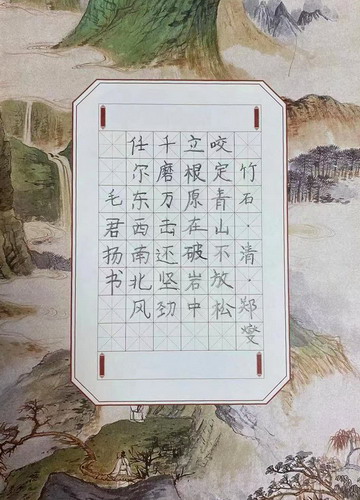 竹石·清·郑燮
咬定青山不放松
立根原在破岩中
千磨万击还坚劲
任尔东西南北风
毛君扬书